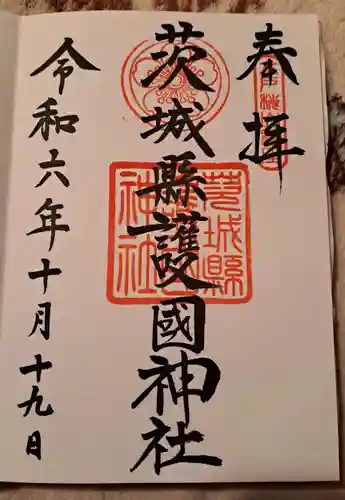 奉拝
茨城縣護國神社
令和六年十月十九日
茨城縣
神社